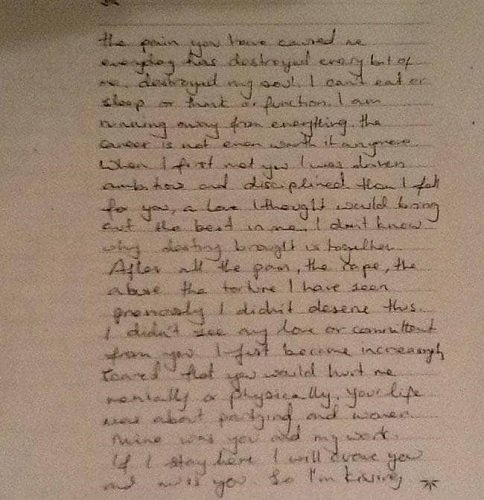 the pain you have caused me
everyday has destroyed every bit of
me, destroyed my soul. I can't eat or
sleep or think or function. I am
running away from everything. the
career is not even worth it anymore.
When I first met you I was driven
ambitious and disciplined then I fell
for you, a love I thought would bring
out the best in me. I don't know
why destiny brought us together.
After all the pain, the rape, the
abuse the torture I have seen
previously I didn't deserve this.
I didn't see any love or commitment
from you. I just became increasingly
scared that you would hurt me
mentally or physically. Your life
was about partying and women
mine was you and my work.
If I stay here I will crave you
and miss you. So I'm kissing